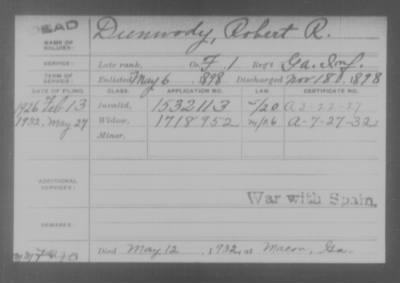 DEAD
NAME OF SOLDIER: Dunwody, Robert R.
SERVICE: Late rank, Co. F, 1 Reg't Ga. Inf.
TERM OF SERVICE: Enlisted May 6 1898 Discharged Nov 18 1898
DATE OF FILING. CLASS. APPLICATION NO. LAW. CERTIFICATE NO.
1926 Feb 13 Invalid, 1532113 A-2-22-27
1932, May 27 Widow, 1718952 A-7-27-32
Minor,
ADDITIONAL SERVICES:
War with Spain.
REMARKS:
Died May 12, 1932, at Macon, Ga.